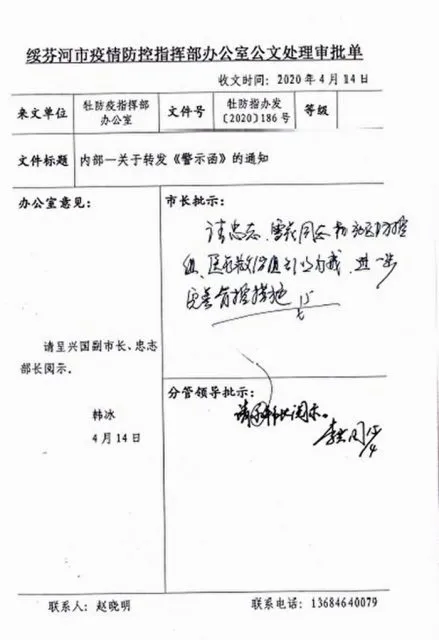 绥芬河市疫情防控指挥部办公室公文处理审批单
收文时间：2020年4月14日
来文单位 牡防疫指挥部办公室 文件号 牡防指办发〔2020〕186号 等级
文件标题 内部—关于转发《警示函》的通知
办公室意见：
请呈兴国副市长、忠志
部长阅示。
韩冰
4月14日
市长批示：
请忠志、同志
组、医
完善防控措施 15/
分管领导批示：
请 市长阅示。
李兴国 15/4
联系人：赵晓明 联系电话：13684640079